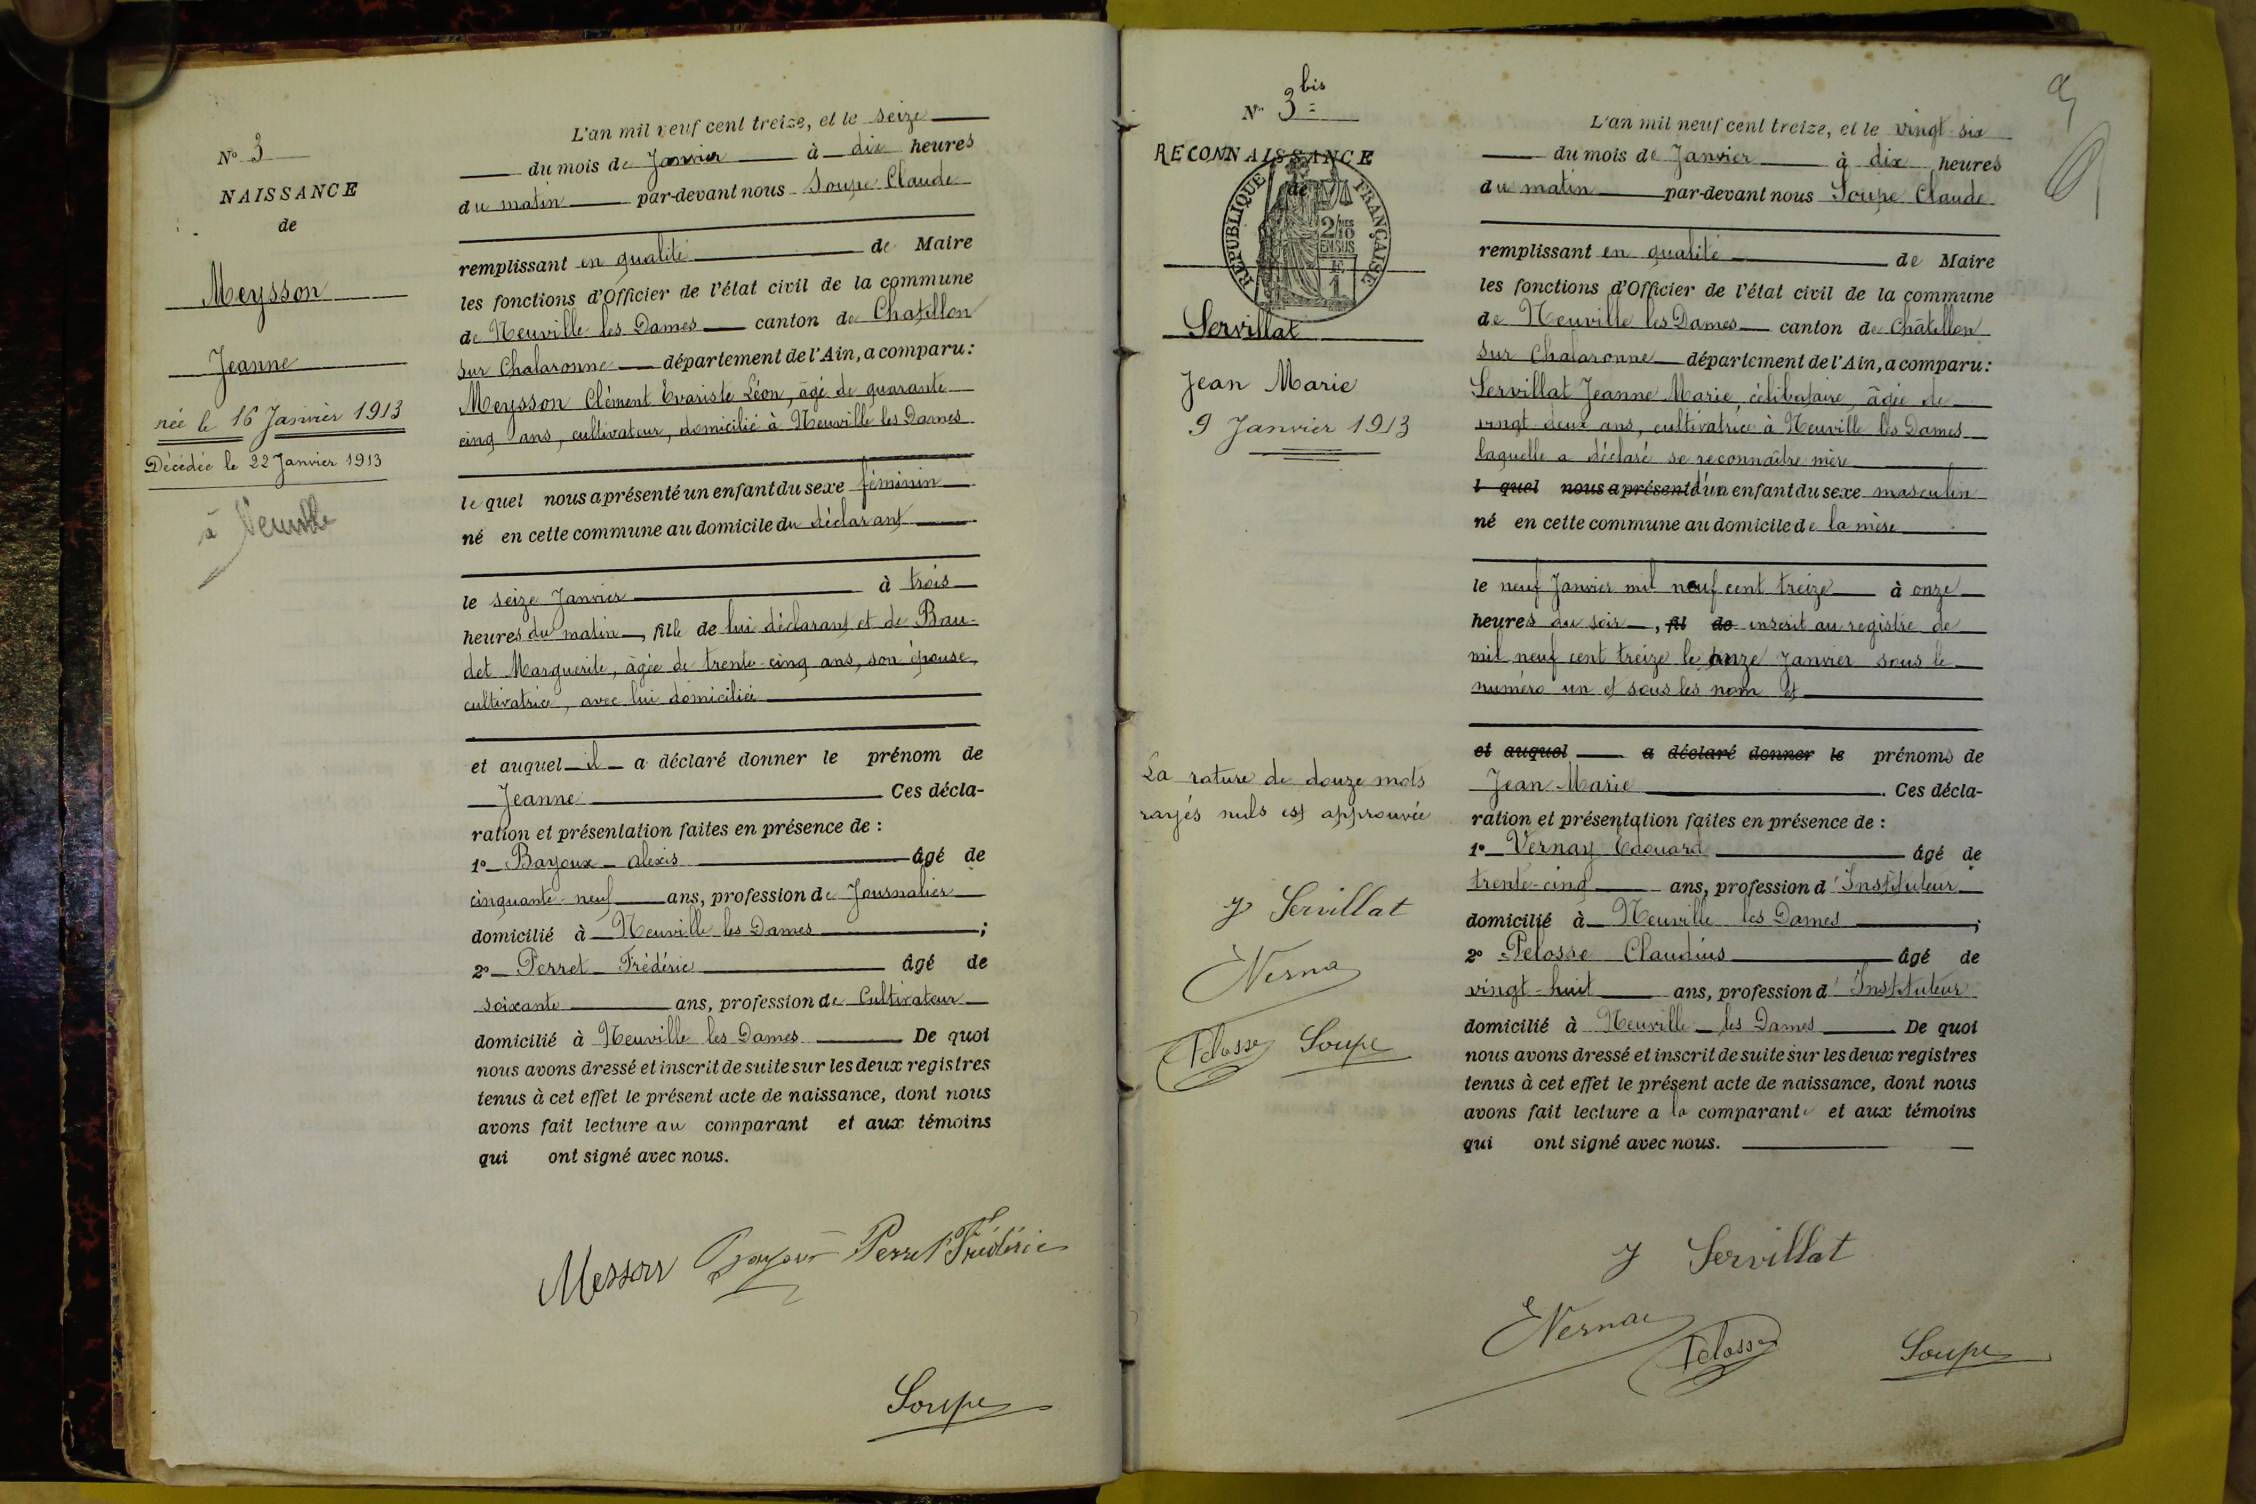 N° 3
NAISSANCE
de
Meysson
Jeanne
née le 16 Janvier 1913
Décédée le 22 Janvier 1913
à Neuville
L'an mil neuf cent treize, et le seize
du mois de Janvier à dix heures
du matin par-devant nous Soupe Claude
remplissant en qualité de Maire
les fonctions d'Officier de l'état civil de la commune
de Neuville les Dames canton de Chatillon
sur Chalaronne département de l'Ain, a comparu:
Meysson Clément Evariste Léon, âgé de quarante
cinq ans, cultivateur, domicilié à Neuville les Dames
le quel nous a présenté un enfant du sexe féminin
né en cette commune au domicile du déclarant
le seize Janvier à trois
heures du matin, fille de lui déclarant et de Bau-
det Marguerite, âgée de trente-cinq ans, son épouse,
cultivatrice, avec lui domiciliée
et auquel il a déclaré donner le prénom de
Jeanne Ces décla-
ration et présentation faites en présence de :
1° Bayoux Alexis âgé de
cinquante-neuf ans, profession de Journalier
domicilié à Neuville les Dames ;
2° Perret Frédéric âgé de
soixante ans, profession de Cultivateur
domicilié à Neuville les Dames De quoi
nous avons dressé et inscrit de suite sur les deux registres
tenus à cet effet le présent acte de naissance, dont nous
avons fait lecture au comparant et aux témoins
qui ont signé avec nous.
Messon Bayoux Perret Frédéric
Soupe
N° 3 bis
RECONNAISSANCE
de
REPUBLIQUE FRANÇAISE
2/10 MES
EN SUS
E
1
Servillat
Jean Marie
9 Janvier 1913
La rature de douze mots
rayés nuls est approuvée
J Servillat
EVerna
Pelosse Soupe
L'an mil neuf cent treize, et le vingt-six
du mois de Janvier à dix heures
du matin par-devant nous Soupe Claude
remplissant en qualité de Maire
les fonctions d'Officier de l'état civil de la commune
de Neuville les Dames canton de Châtillon
sur Chalaronne département de l'Ain, a comparu:
Servillat Jeanne Marie, célibataire, âgée de
vingt-deux ans, cultivatrice à Neuville les Dames
laquelle a déclaré se reconnaître mère
l quel nous a présenté d'un enfant du sexe masculin
né en cette commune au domicile de la mère
le neuf Janvier mil neuf cent treize à onze
heures du soir, fil de inscrit au registre de
mil neuf cent treize le onze Janvier sous le
numéro un et sous les nom et
et auquel a déclaré donner le prénoms de
Jean Marie. Ces décla-
ration et présentation faites en présence de :
1° Vernay Edouard âgé de
trente-cinq ans, profession d'Instituteur
domicilié à Neuville les Dames ;
2° Pelosse Claudius âgé de
vingt-huit ans, profession d'Instituteur
domicilié à Neuville les Dames De quoi
nous avons dressé et inscrit de suite sur les deux registres
tenus à cet effet le présent acte de naissance, dont nous
avons fait lecture a la comparante et aux témoins
qui ont signé avec nous.
J Servillat
EVernay
Pelosse Soupe